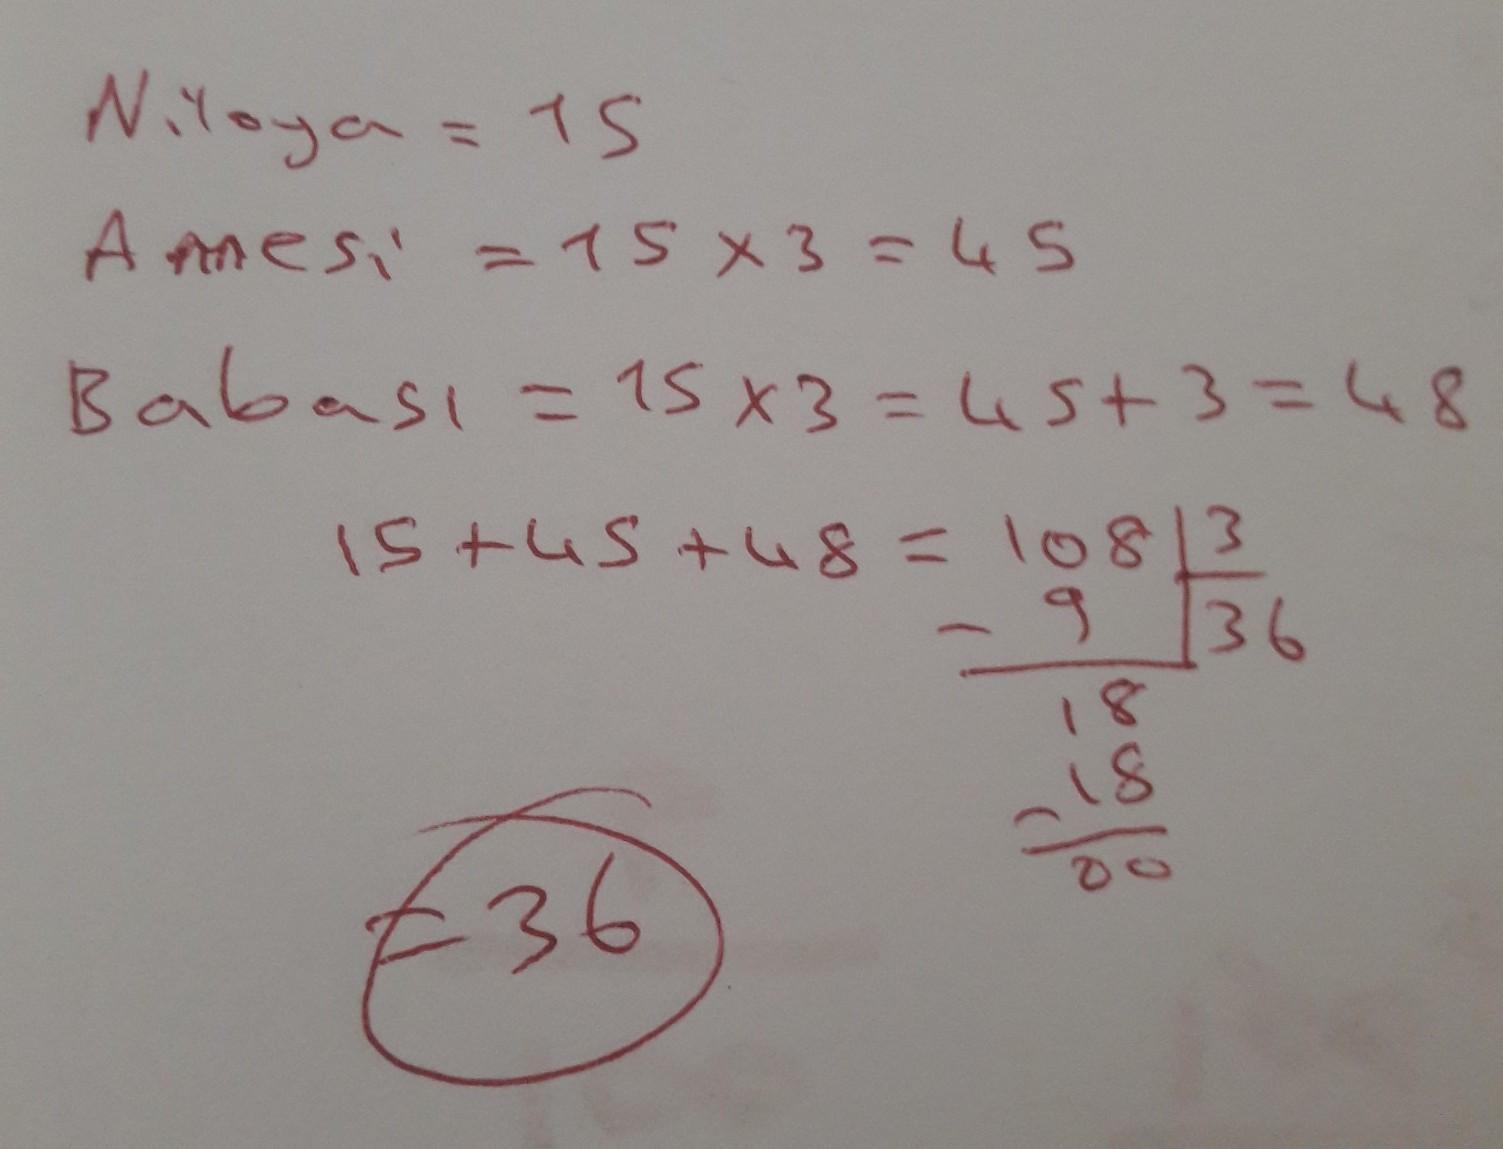 Niloya = 15
Annesi = 15 x 3 = 45
Babası = 15 x 3 = 45 + 3 = 48
15 + 45 + 48 = 108 | 3
- 9 | 36
18
- 18
00
= 36